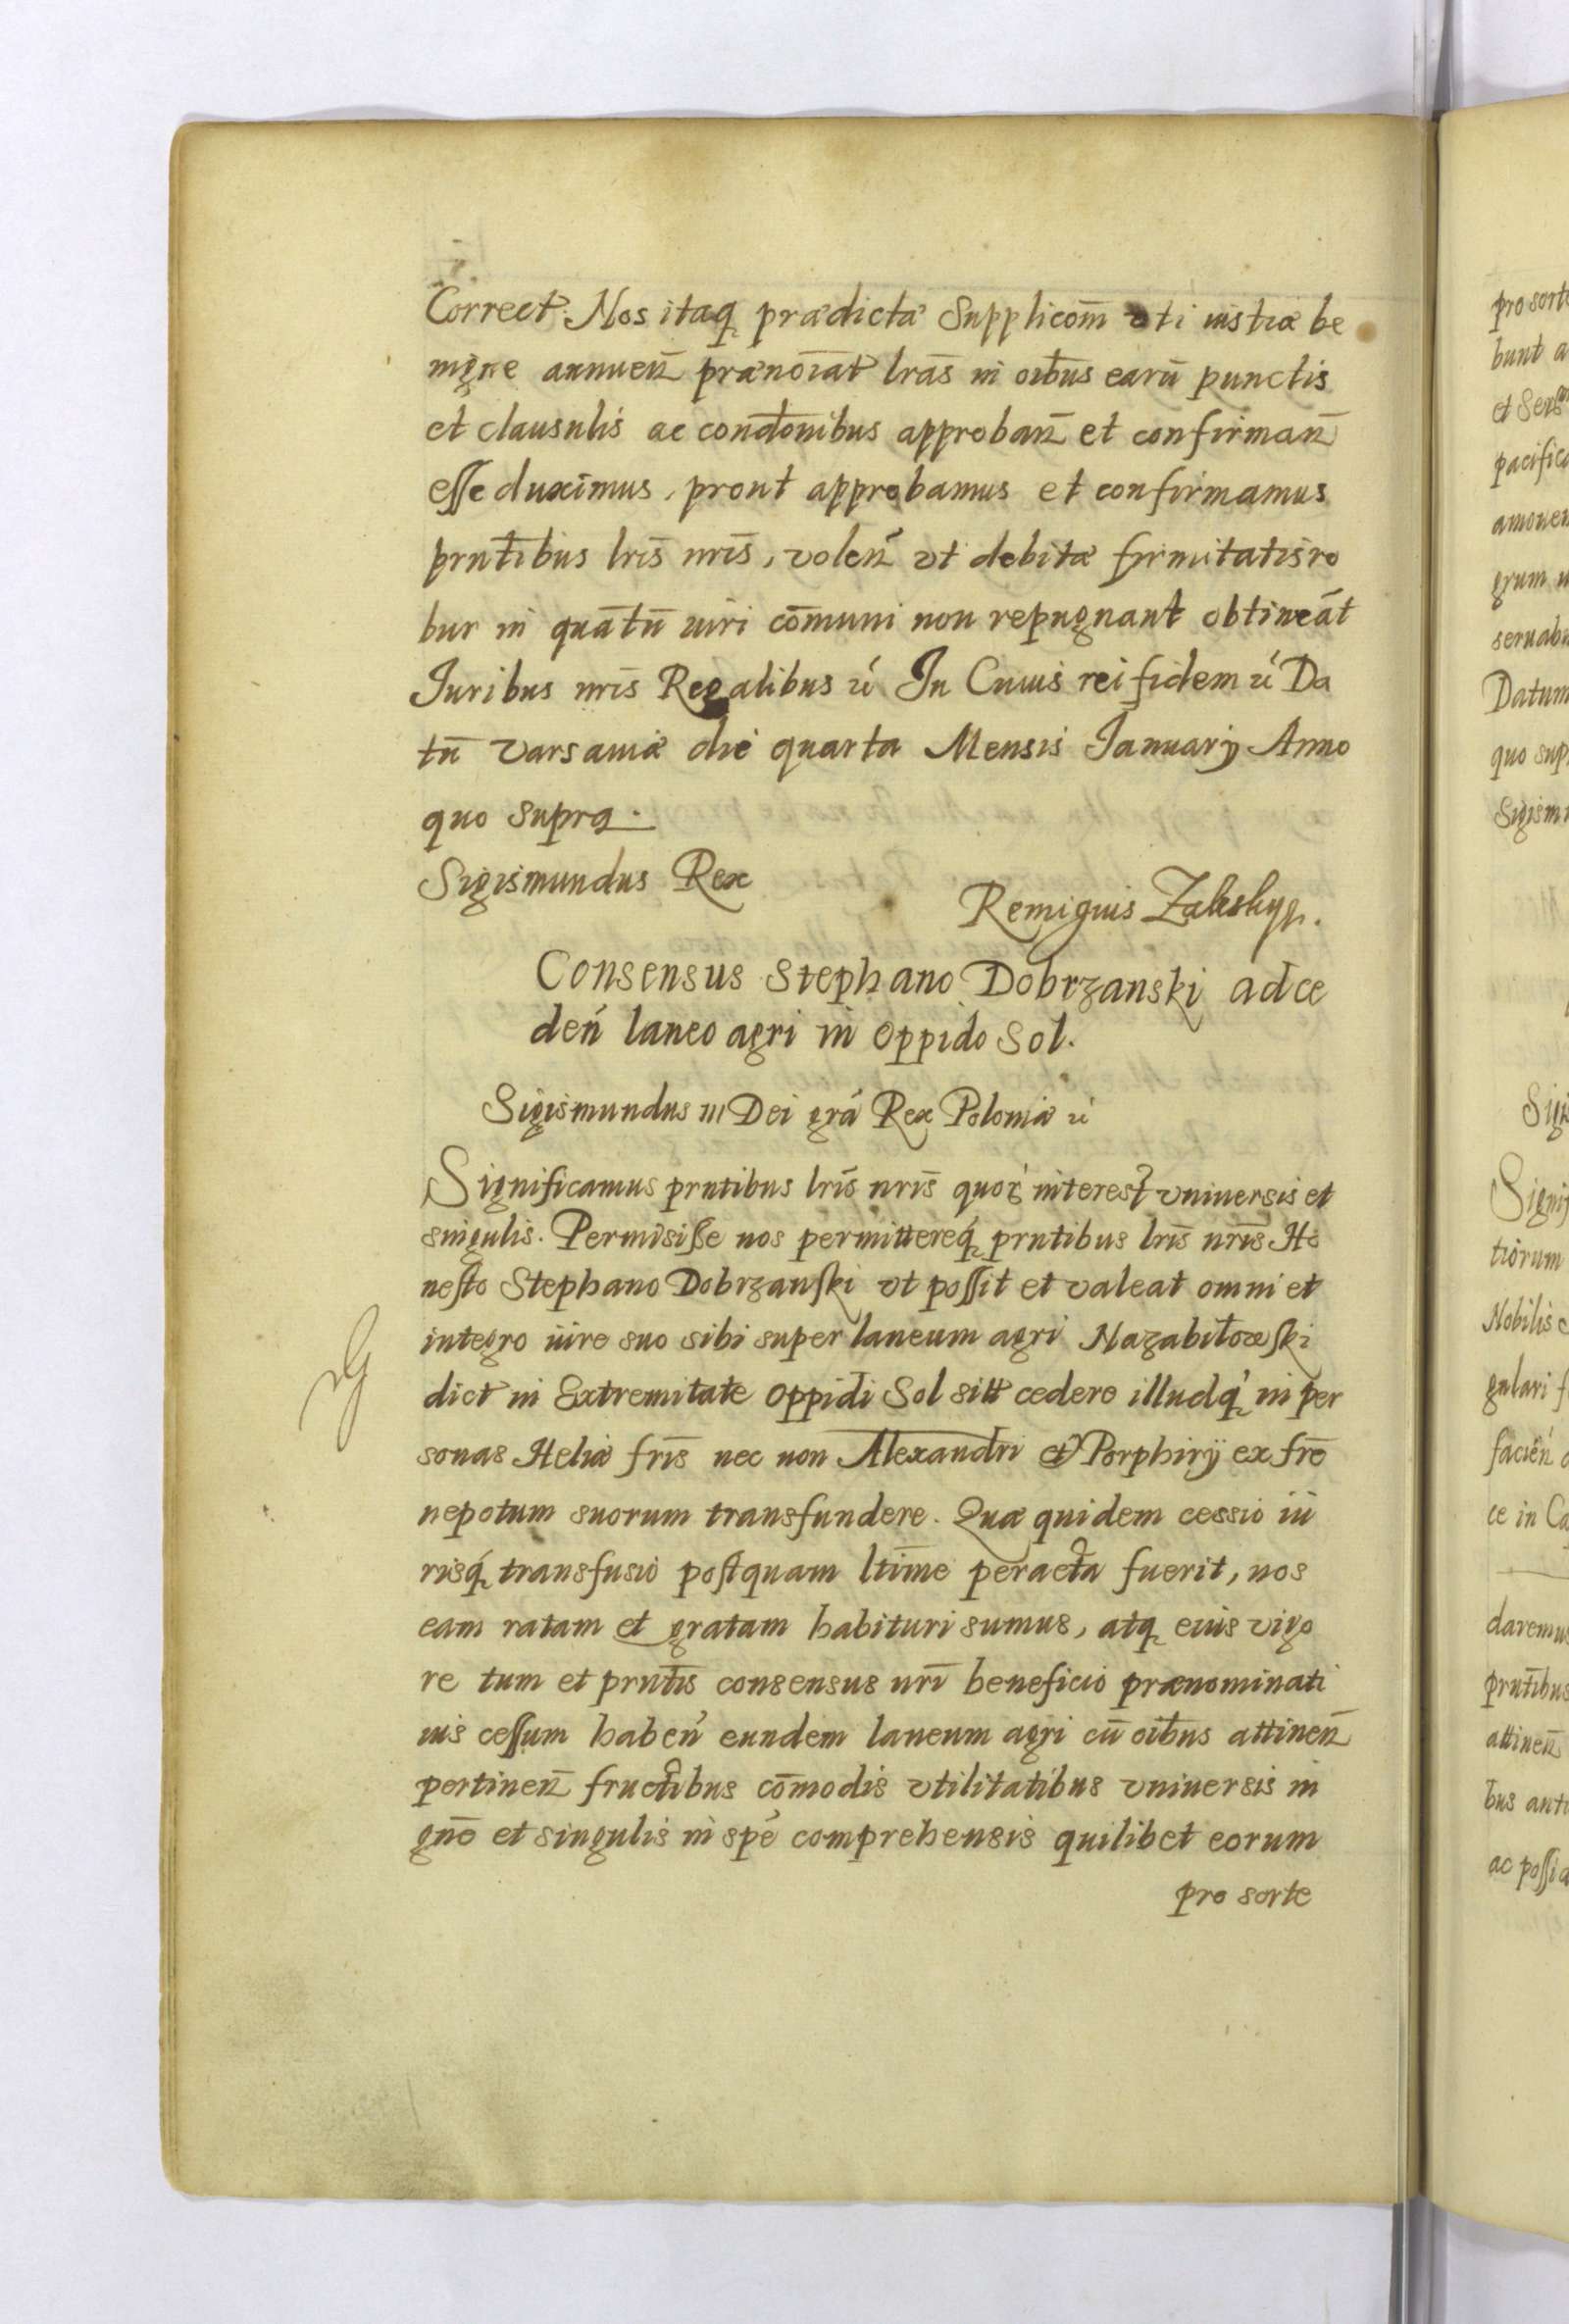 Correct. Nos itaq prædictæ Supplicom̄ vti iustiæ be
nigne annuen̄ prænōiat lrās in oibus earū punctis
et clausulis ac condōnibus approban̄ et confirman̄
esse duximus, prout approbamus et confirmamus
prntibus lris nris, volen̄ vt debitæ firmitatis ro
bur in quātū iuri cōmuni non repugnant obtineāt
Iuribus nris Regalibus In Cuius rei fidem Da
tū varsauiæ die quarta Mensis Ianuarij Anno
quo supra.
Sigismundus Rex
Remigius
Consensus Stephano Dobrzanski ad ce
den̄ laneo agri in oppido Sol.
Sigismundus III Dei grā Rex Poloniæ
Significamus prntibus lris nris quor interest vniuersis et
singulis. Permisisse nos permittereq prntibus lris nris Ho
nesto Stephano Dobrzanski vt possit et valeat omni et
integro iure suo sibi super laneum agri
dict in Extremitate oppidi Sol sitt cedere illudq in per
sonas Heliæ fris nec non Alexandri et Porphirij ex frē
nepotum suorum transfundere. Quæ quidem cessio iu
risq transfusio postquam ltime peracta fuerit, nos
eam ratam et gratam habituri sumus, atq eius vigo
re tum et prntis consensus nri beneficio prænominati
ius cessum haben̄ eundem laneum agri cū oibus attinen̄
pertinen̄ fructibus cōmodis vtilitatibus vniuersis in
gnē et singulis in spē comprehensis quilibet eorum
pro sorte
pro sorte
bunt a
pacifica
amouen
grum
Datum
quo sup
Sigism
Sig
Signif
tiorum
Nobilis
gulari f
facien̄
ce in Ca
daremus
prntibus
attinen̄
bus anti
ac possi